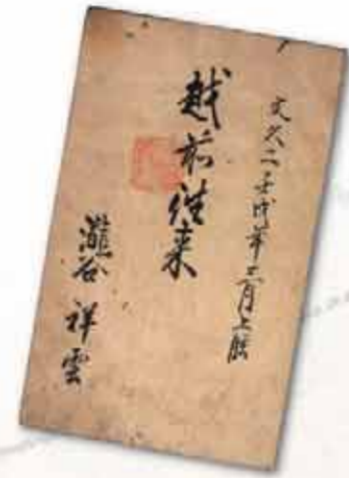 文久二壬戌年三月上
越前往来
瀧谷 祥雲